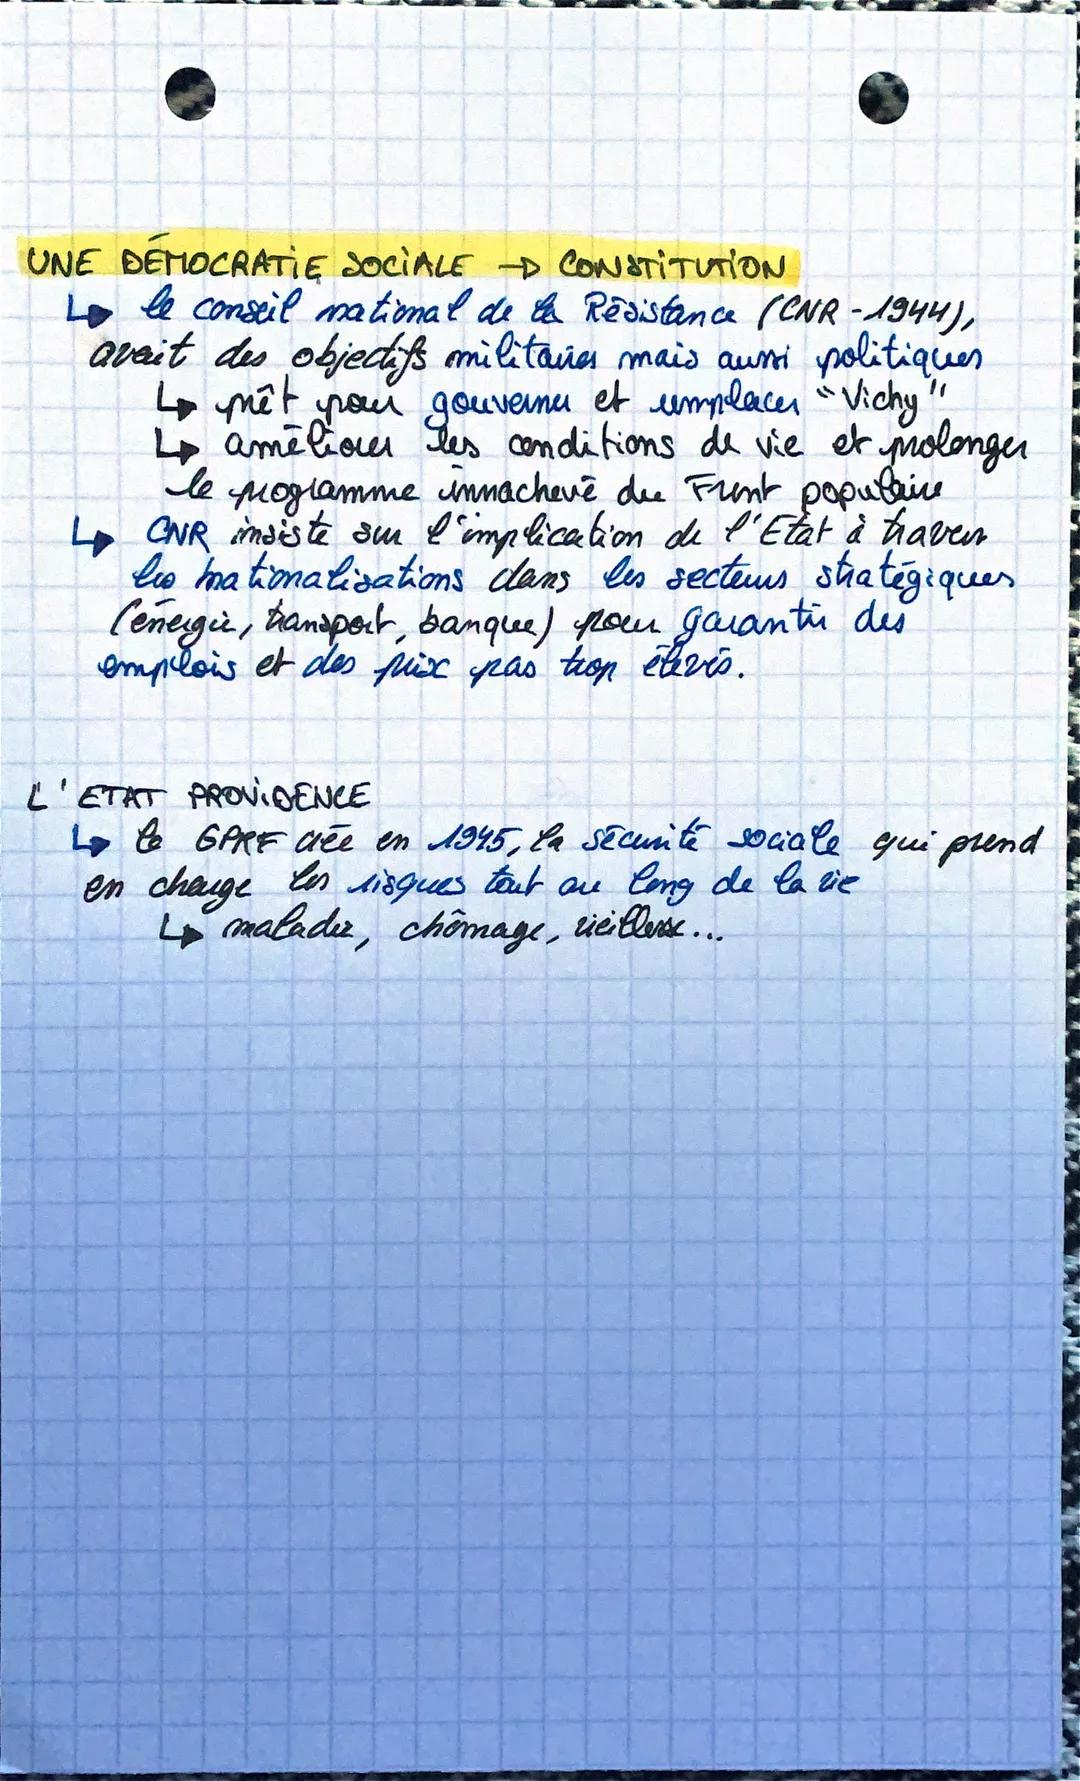 UNE DÉMOCRATIE SOCIALE → CONSTITUTION
↳ le conseil national de la Résistance (CNR - 1944),
avait des objectifs militaires mais aussi politiques
↳ prêt pour gouverner et remplacer "Vichy"
↳ améliorer les conditions de vie et prolonger
le programme innachevé du Front populaire
↳ CNR insiste sur l'implication de l'Etat à travers
les nationalisations dans les secteurs stratégiques
(énergie, transport, banque) pour garantir des
emplois et des prix pas trop élevés.
L'ETAT PROVIDENCE
↳ le GPRF crée en 1945, la sécurité sociale qui prend
en charge les risques tout au long de la vie
↳ maladie, chômage, vieillesse...